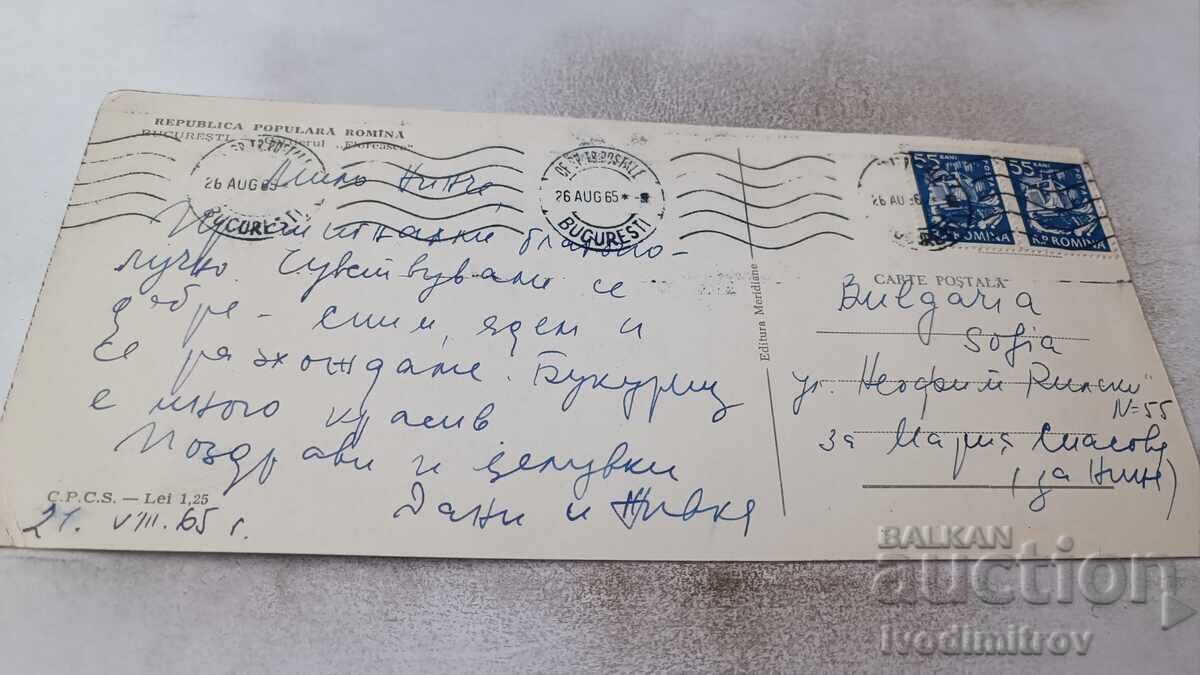 REPUBLICA POPULARĂ ROMÎNĂ
BUCUREȘTI „Floreasca"
26 AUG 65
BUCUREȘTI
OF. P.T.T.R. POSTALE
26 AUG 65 *
BUCUREȘTI
26 AUG 65
55 BANI
R.P. ROMINA
55 BANI
R.P. ROMINA
Мило Нинче
Пристигнахме благопо-
лучно. Чувствуваме се
добре - спим, ядем и
се разхождаме. Букурещ
е много красив
Поздрави и целувки
Дани и Живка
C.P.C.S. — Lei 1,25
21. VIII. 65 г.
Editura Meridiane
CARTE POȘTALĂ
Bulgaria
Sofia
ул. Неофит Рилски"
N=55
за Мария Спасова
(за Нине)
BALKAN
auction
Ivodimitrov